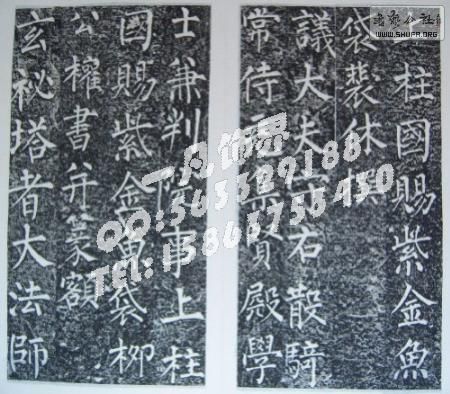 柱國賜紫金魚
袋裴休撰
議大夫守右散騎
常侍充集賢殿學
士兼判院事上柱
國賜紫金魚袋柳
公權書并篆額
玄祕塔者大法師
一凡饰界
QQ:563529188
TEL:
WWW.SHUFA.ORG